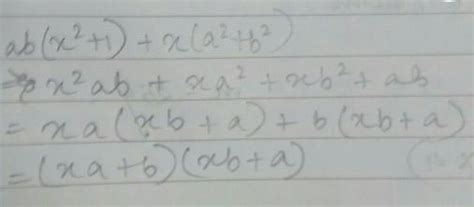 ab(x²+1) + x(a²+b²)
= x²ab + xa² + xb² + ab
= xa(xb+a) + b(xb+a)
= (xa+b)(xb+a)